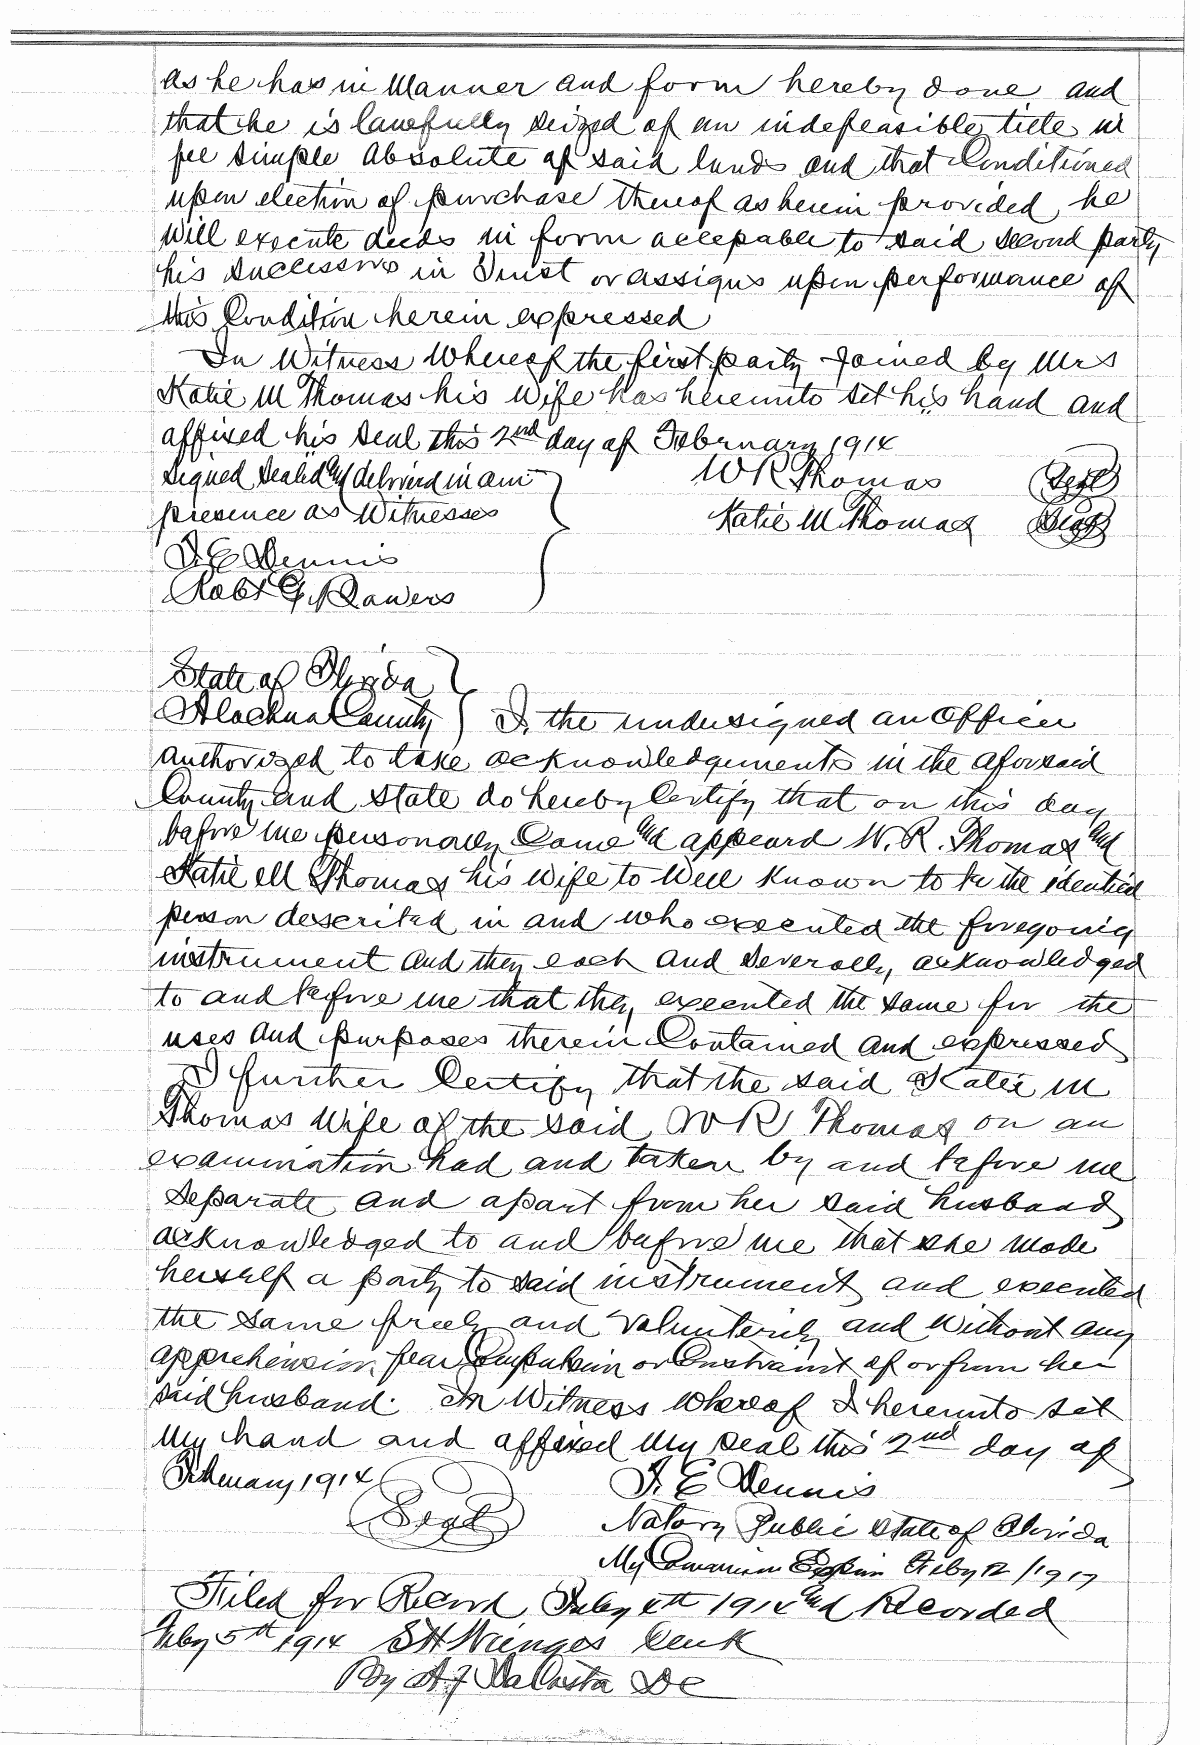 as he has in Manner and form hereby done and
that he is lawfully seized of an indefeasible title in
fee simple absolute of said lands and that Conditioned
upon election of purchase thereof as herein provided he
will execute deeds in form accepable to said second party
his successors in Trust or assigns upon performance of
this Condition herein expressed
In Witness Whereof the first party Joined by Mrs
Katie M Thomas his Wife has hereunto set his hand and
affixed his seal this 2nd day of February 1914
Signed Sealed and delivered in our
presence as Witnesses
W R Thomas (Seal)
Katie M Thomas (Seal)
T. E Dennis
Robt G. Powers
State of Florida
Alachua County I, the undersigned an Officer
authorized to take acknowledgements in the aforesaid
County and State do hereby Certify that on this day
before me personally Came and appeard W. R. Thomas and
Katie M Thomas his Wife to Well known to be the identical
person described in and who executed the foregoing
instrument and they each and severally acknowledged
to and before me that they executed the same for the
uses and purposes therein Contained and expressed
I further Certify that the said Katie M
Thomas Wife of the said W R Thomas on an
examination had and taken by and before me
separate and apart from her said husband
acknowledged to and before me that she made
herself a party to said instrument and executed
the same freely and Volunterily and Without any
apprehension, fear Compulsion or Constraint of or from her
said husband. In Witness Whereof I hereunto set
My hand and affixed My seal this 2nd day of
February 1914 (Seal) T. E Dennis
Notary Public State of Florida
My Commission Expires Feby 12 /1917
Filed for Record Feby 4th 1914 and Recorded
Feby 5th 1914 S H Wienges Clerk
By A. J DaCosta DC